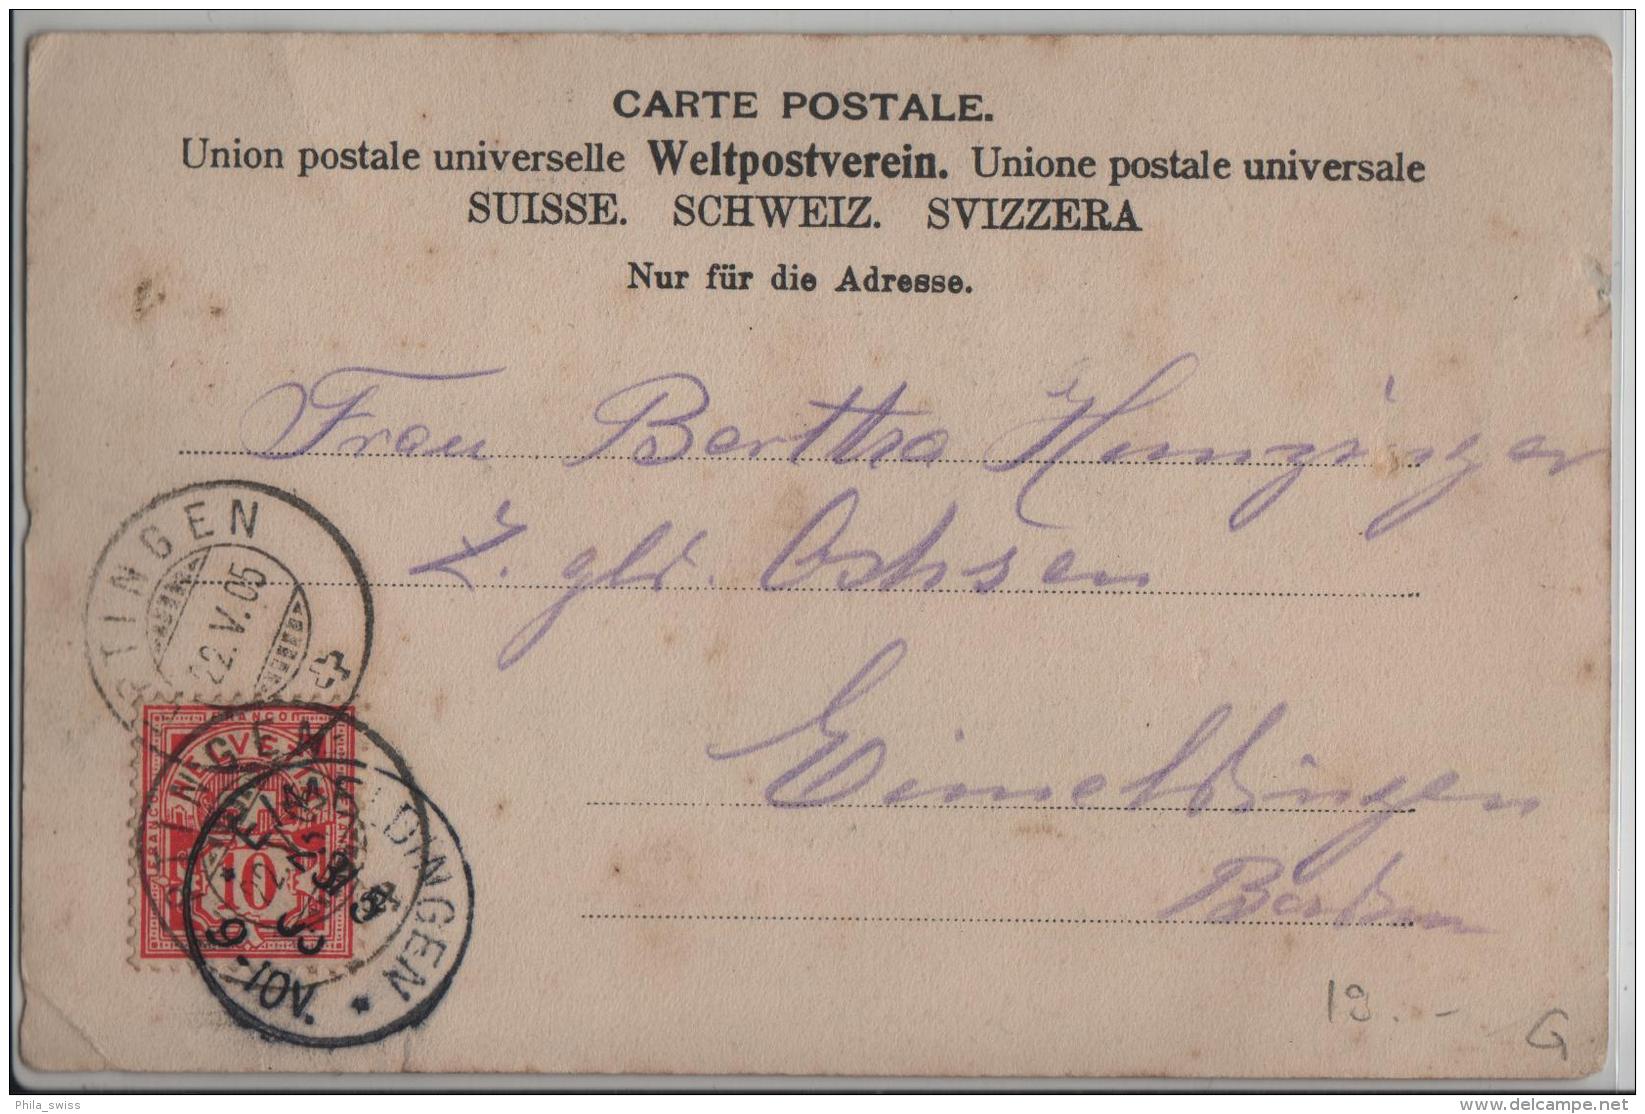 CARTE POSTALE.
Union postale universelle Weltpostverein. Unione postale universale
SUISSE. SCHWEIZ. SVIZZERA
Nur für die Adresse.
Frau Bertha Hunzinger
z. gld. Ochsen
Eimeldingen
Baden
TINGEN
22.V.05
FRANCO
10
EIMELDINGEN
19.-
G
Phila_swiss
www.delcampe.net